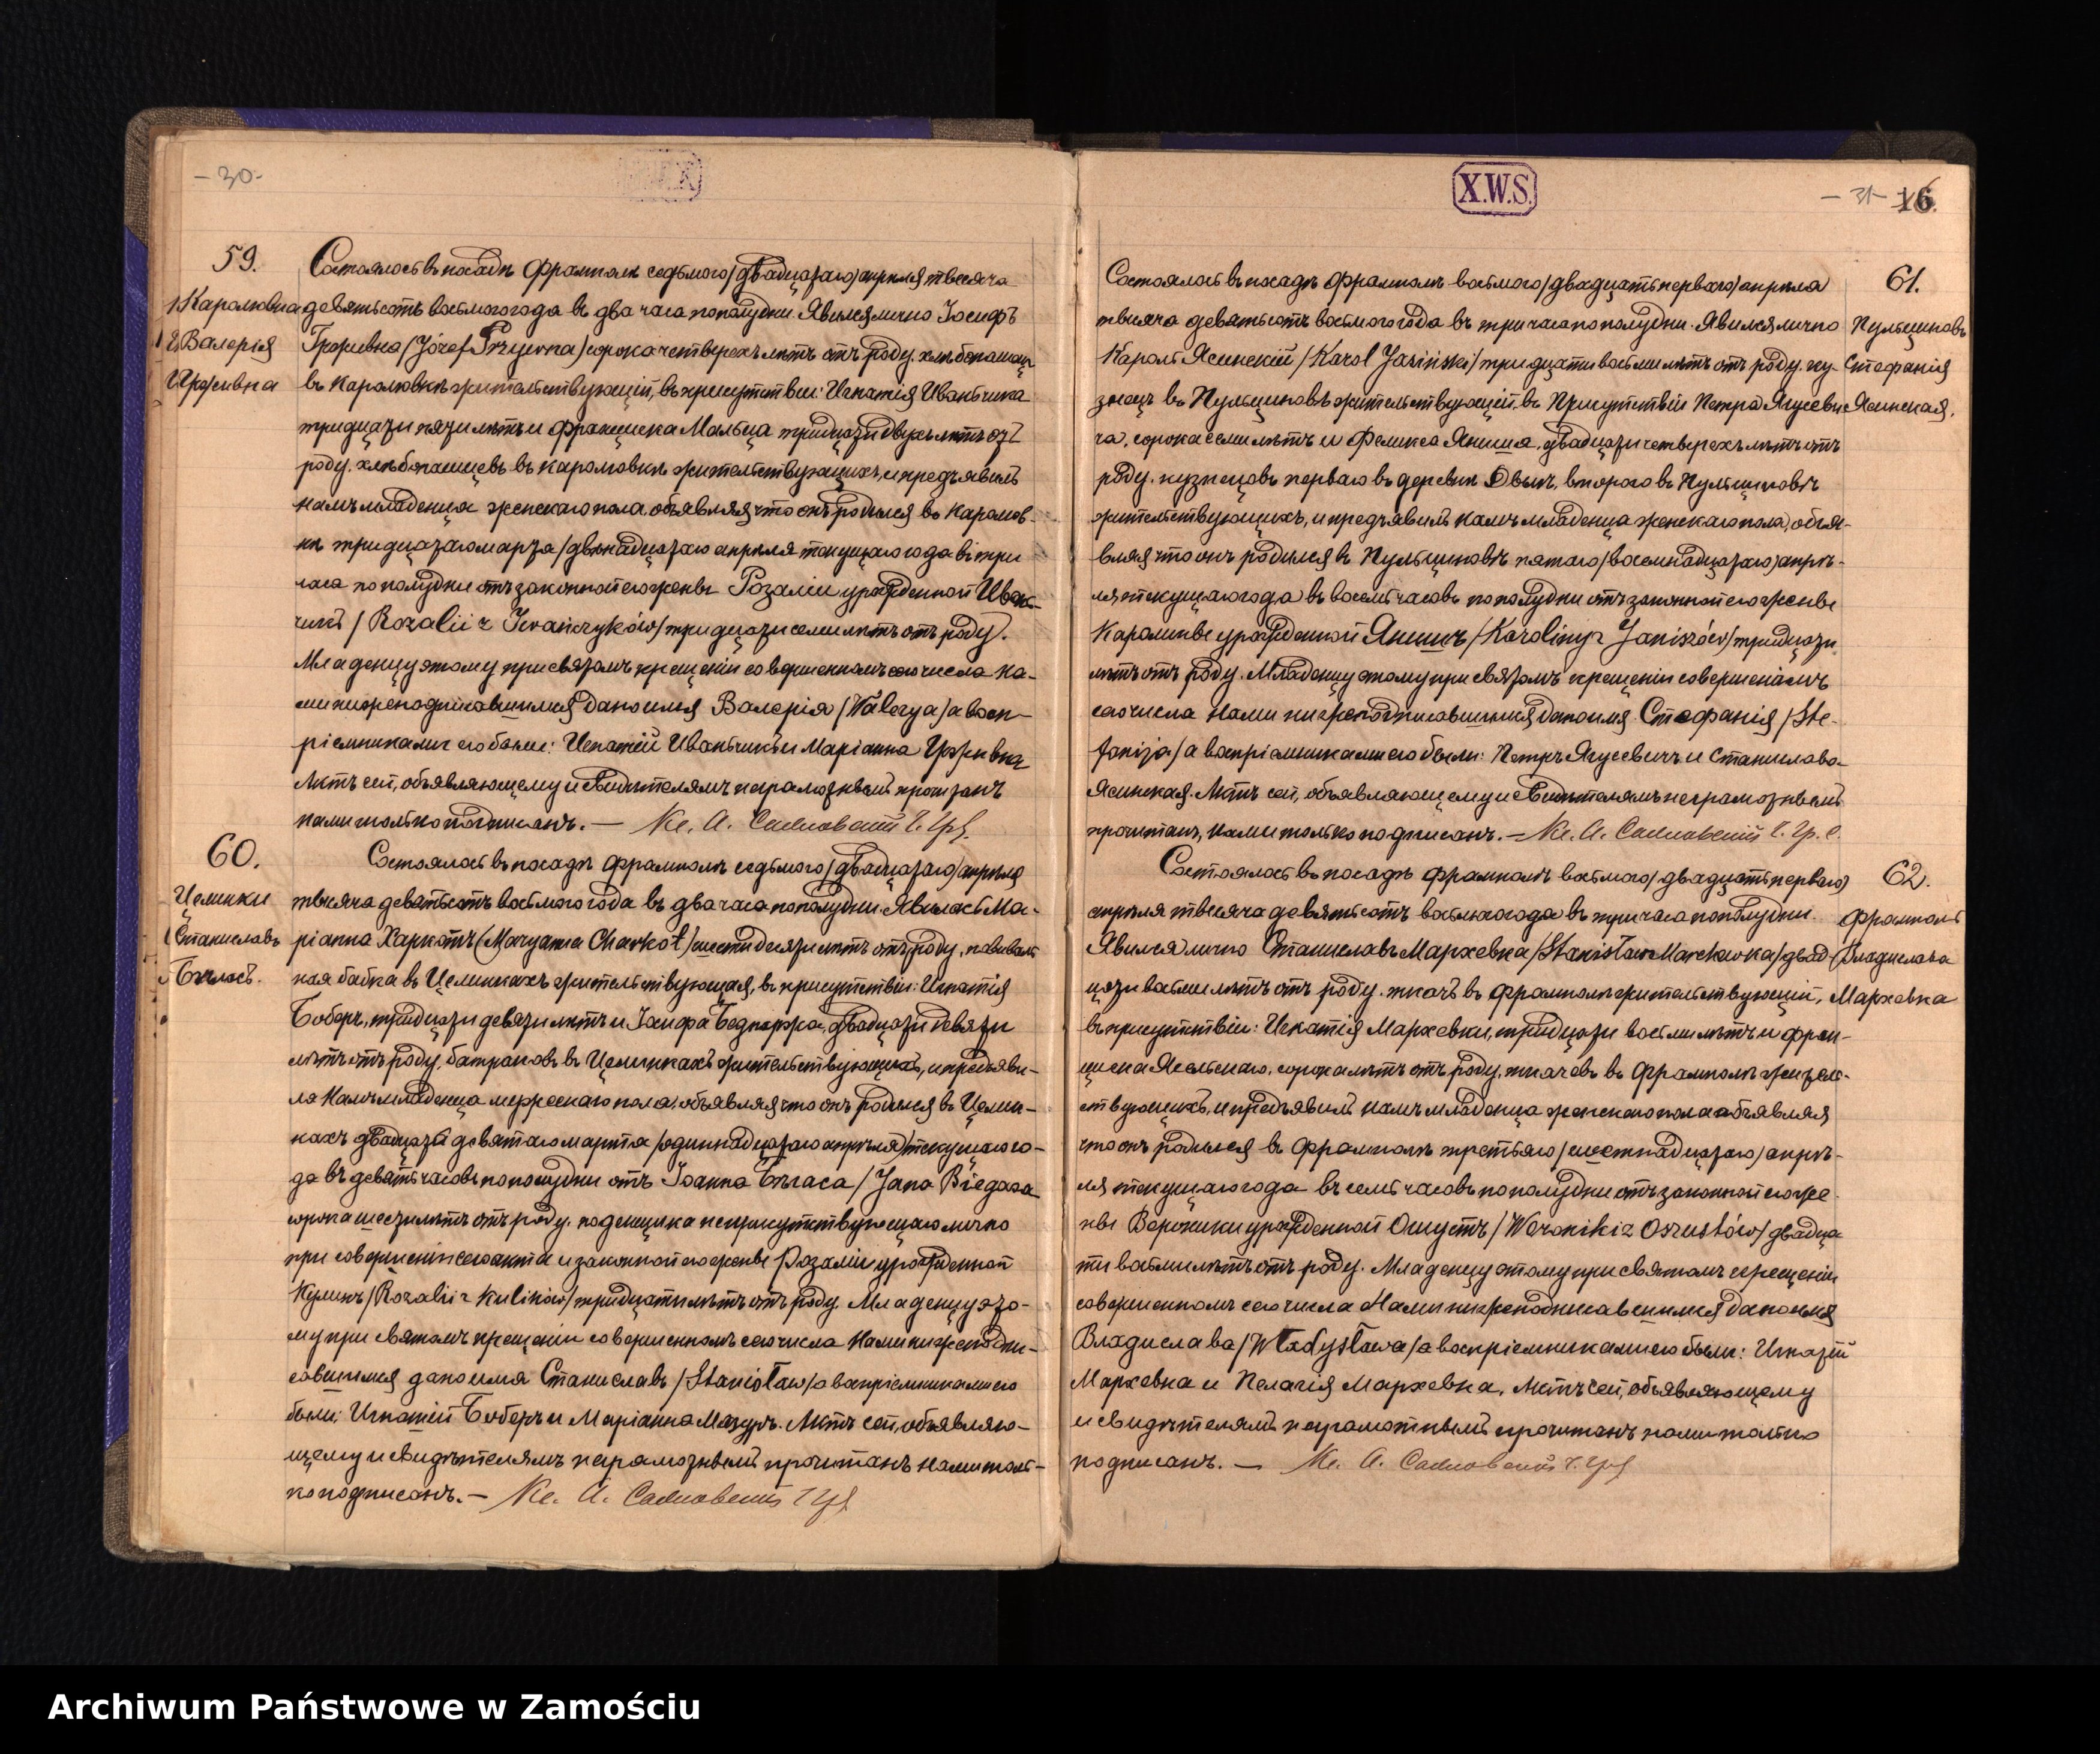 - 30 -
59.
1. Каролювка
Валерія
Состоялось въ посадѣ Фрамполѣ седьмого /двадцатаго/ апрѣля тысяча
девятьсотъ восьмого года въ два часа пополудни. Явился лично Іосифъ
/Józef Przyewna/ сорока четырехъ лѣтъ отъ роду, хлѣбопашецъ
въ Каролювкѣ жительствующій, въ присутствіи: Игнатія Иванчика
тридцати пяти лѣтъ и Францишка Мальца тридцати двухъ лѣтъ отъ
роду, хлѣбопашцевъ въ Каролювкѣ жительствующихъ, и предъявилъ
намъ младенца женскаго пола, объявляя что онъ родился въ Каролюв-
кѣ тридцатаго марта /двѣнадцатаго апрѣля текущаго года въ три
часа пополудни отъ законной его жены Розаліи урожденной Иван-
чикъ / Rozalii z Iwańczyków/ тридцати семи лѣтъ отъ роду.
Младенцу этому при святомъ крещеніи совершенномъ сего числа на-
ми нижеподписавшимся дано имя Валерія /Walerya/ а восп-
ріемниками его были: Игнатій Иванчикъ и Маріанна
Актъ сей, объявляющему и свидѣтелямъ неграмотнымъ прочитанъ
нами только подписанъ. — Кс. А.
60.
Целинки
Станиславъ
Бѣгасъ.
Состоялось въ посадѣ Фрамполѣ седьмого /двадцатаго/ апрѣля
тысяча девятьсотъ восьмого года въ два часа пополудни. Явилась Ма-
ріанна Харкотъ (Maryanna Charkot) шестидесяти лѣтъ отъ роду, повиваль
ная бабка въ Целинкахъ жительствующая, въ присутствіи: Игнатія
Боберъ, тридцати девяти лѣтъ и Іосифа Беднаржа, двадцати девяти
лѣтъ отъ роду, батраковъ въ Целинкахъ жительствующихъ, и предъяви-
ла намъ младенца мужескаго пола, объявляя что онъ родился въ Целин-
кахъ двадцать девятаго марта /одиннадцатаго апрѣля/ текущаго го-
да въ девять часовъ пополудни отъ Іоанна Бѣгаса / Jana Biegasa
сорока шести лѣтъ отъ роду, поденщика неприсутствующаго лично
при совершеніи сего акта и законной его жены Розаліи урожденной
Куликъ /Rozalii z Kulików/ тридцати лѣтъ отъ роду. Младенцу это-
му при святомъ крещеніи совершенномъ сего числа нами нижеподпи-
савшимся дано имя Станиславъ /Stanisław/ а воспріемниками его
были: Игнатій Боберъ и Маріанна Мазуръ. Актъ сей, объявляю-
щему и свидѣтелямъ неграмотнымъ прочитанъ нами толь-
ко подписанъ. — Кс. А.
X.W.S.
- 31 - 16.
61.
Стефанія
Ясинская.
Состоялось въ посадѣ Фрамполѣ восьмого /двадцать перваго/ апрѣля
тысяча девятьсотъ восьмого года въ три часа пополудни. Явился лично
Кароль Ясинскій /Karol Jasiński/ тридцати восьми лѣтъ отъ роду, ку-
знецъ въ жительствующій, въ присутствіи Петра Ягусеви
ча, сорока семи лѣтъ и Феликса Яниша, двадцати четырехъ лѣтъ отъ
роду, кузнецовъ перваго въ деревнѣ второго въ
жительствующихъ, и предъявилъ намъ младенца женскаго пола, объя-
вляя что онъ родился въ пятаго /восемнадцатаго/ апрѣ-
ля текущаго года въ восемь часовъ пополудни отъ законной его жены
Каролины урожденной Янишъ /Karoliny z Janiszów/ тридцати
лѣтъ отъ роду. Младенцу этому при святомъ крещеніи совершеномъ
сего числа нами нижеподписавшимся дано имя Стефанія /Ste-
fanija/ а воспріемниками его были: Петръ Ягусевичъ и Станислава
Ясинская. Актъ сей, объявляющему и свидѣтелямъ неграмотнымъ
прочитанъ, нами только подписанъ. — Кс. А.
62.
Фрамполь
Владислава
Мархевка
Состоялось въ посадѣ Фрамполѣ восьмого /двадцать перваго/
апрѣля тысяча девятьсотъ восьмого года въ три часа пополудни.
Явился лично Станиславъ Мархевка /Stanisław Marchewka/ двад-
цати восьми лѣтъ отъ роду, ткачъ въ Фрамполѣ жительствующій,
въ присутствіи: Игнатія Мархевки, тридцати восьми лѣтъ и Фран-
цишка сорока лѣтъ отъ роду, ткачевъ въ Фрамполѣ житель-
ствующихъ, и предъявилъ намъ младенца женскаго пола объявляя
что онъ родился въ Фрамполѣ третьяго /шестнадцатаго/ апрѣ-
ля текущаго года въ семь часовъ пополудни отъ законной его же-
ны Вероники урожденной Ошустъ /Weroniki z Oszustów/ двадца
ти восьми лѣтъ отъ роду. Младенцу этому при святомъ крещеніи
совершенномъ сего числа нами нижеподписавшимся дано имя
Владислава /Władysława/ а воспріемниками его были: Игнатій
Мархевка и Пелагія Мархевка. Актъ сей, объявляющему
и свидѣтелямъ неграмотнымъ прочитанъ нами только
подписанъ. — Кс. А.
Archiwum Państwowe w Zamościu